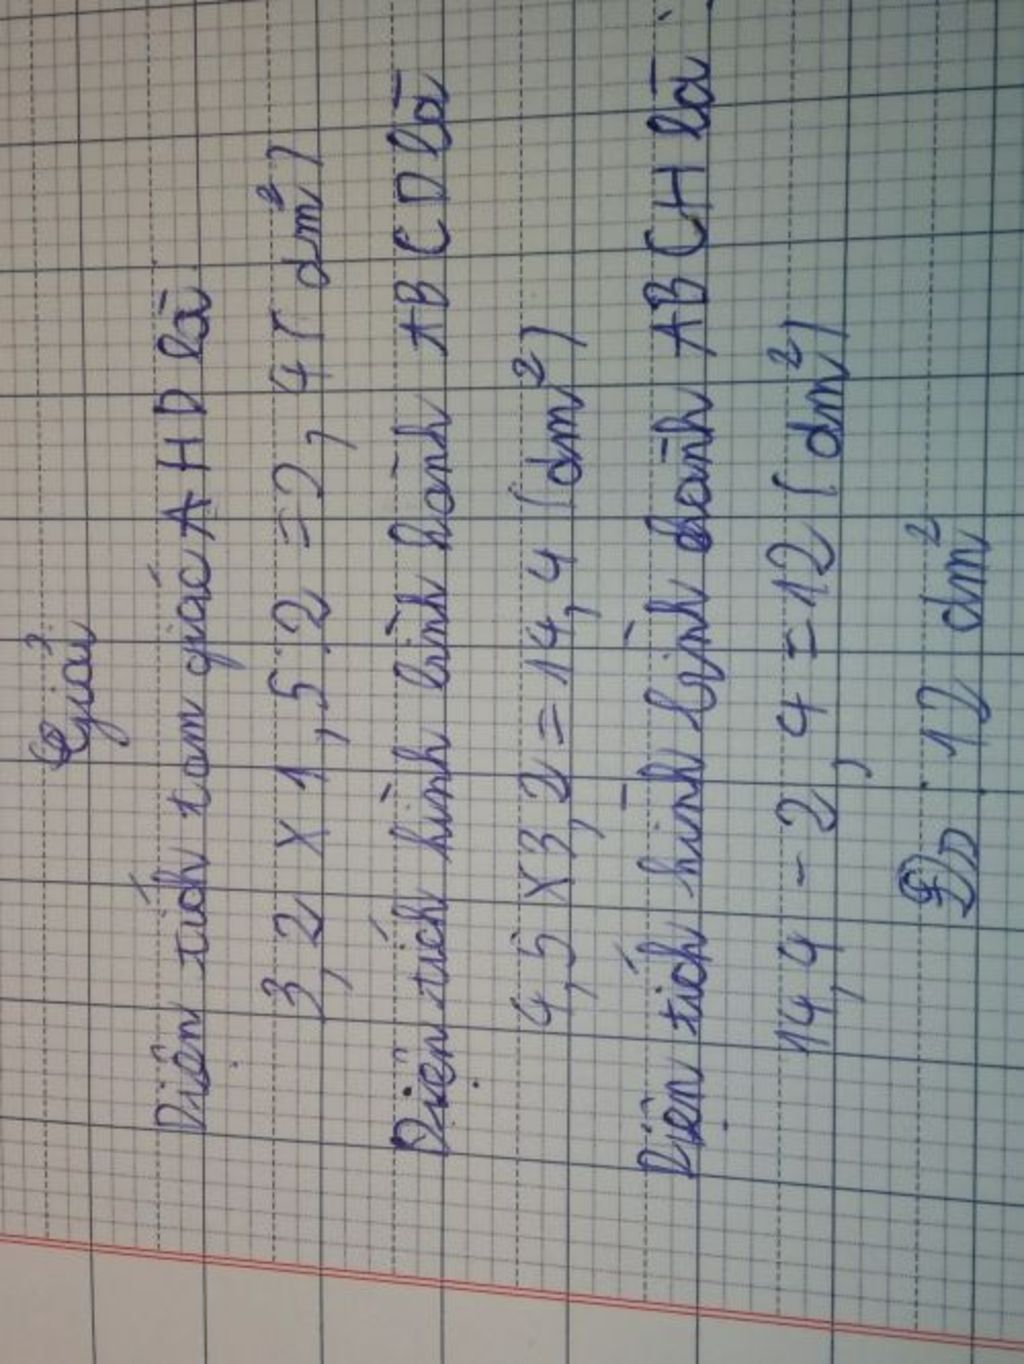 Giải
Diện tích tam giác AHD là
3,2 x 1,5 2 = 2,4 ( dm²)
Diện tích hình bình hành ABCD là
4,5 x 3,2 = 14,4 (dm²)
Diện tích hình bình hành ABCH là
14,4 - 2,4 = 12 ( dm²)
Đs . 12 dm²